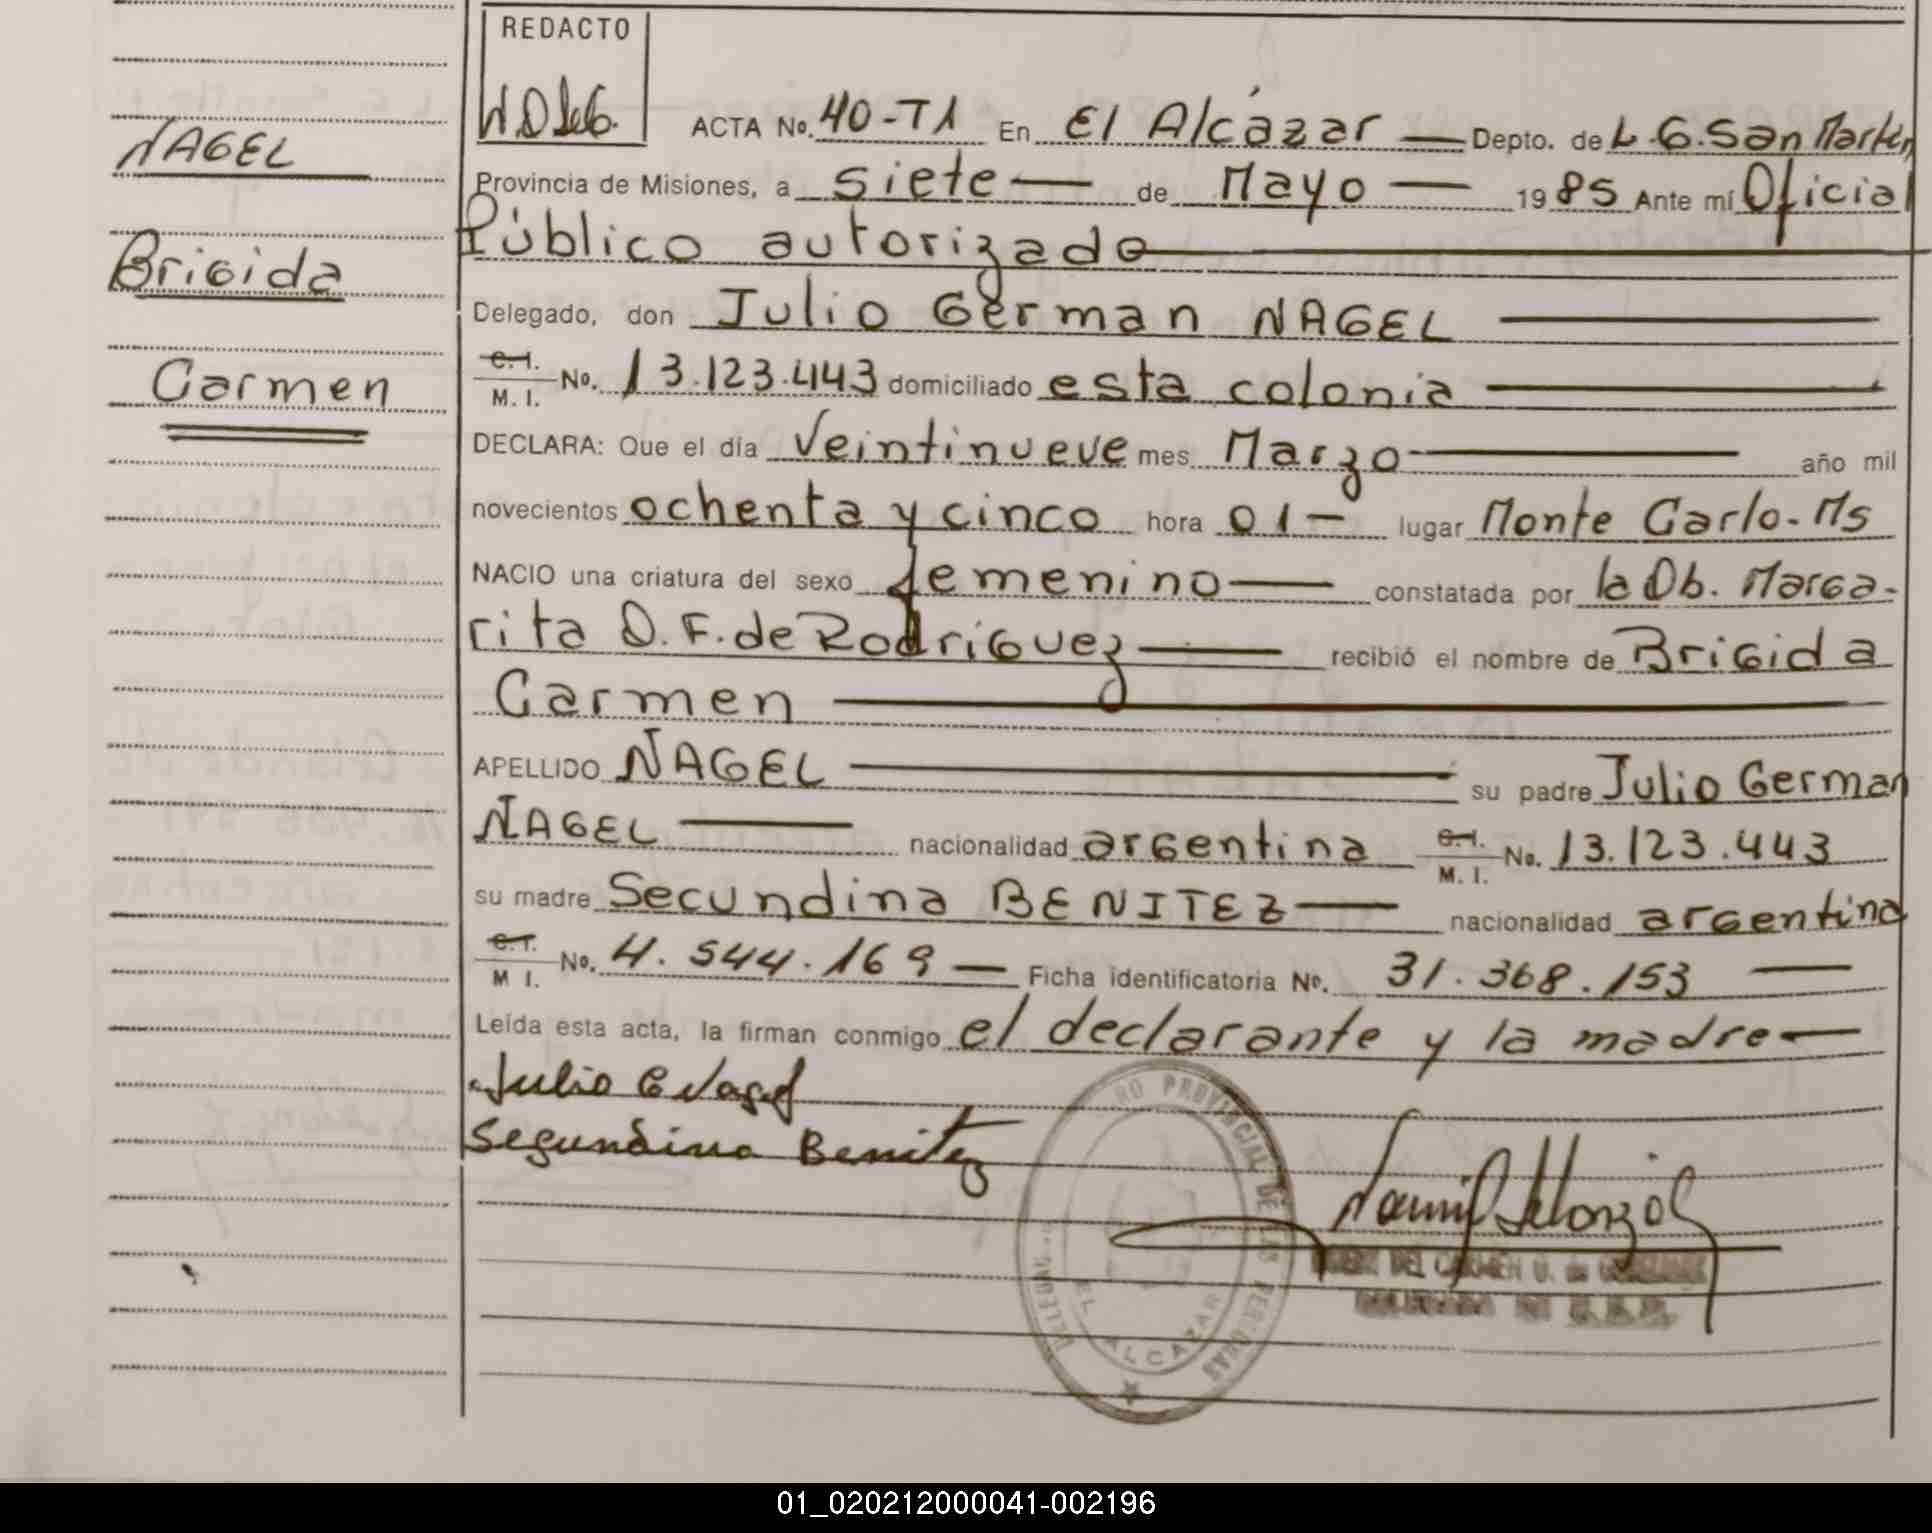 REDACTO
NAGEL
Brigida
Carmen
ACTA No. 40-T1 En El Alcázar — Depto. de L.G.San Martin
Provincia de Misiones, a siete — de Mayo — 1985 Ante mí Oficial
Público autorizado
Delegado, don Julio German NAGEL
C.I. M. I. No. 13.123.443 domiciliado esta colonia
DECLARA: Que el día Veintinueve mes Marzo año mil
novecientos ochenta y cinco hora 01 — lugar Monte Carlo-Ms
NACIO una criatura del sexo femenino — constatada por la Ob. Marga-
rita D. F. de Rodriguez — recibió el nombre de Brigida
Carmen
APELLIDO NAGEL su padre Julio German
NAGEL — nacionalidad argentina C.I. M. I. No. 13.123.443
su madre Secundina BENITEZ — nacionalidad argentina
C.I. M I. No. 4.544.169 — Ficha identificatoria No. 31.368.153 —
Leída esta acta, la firman conmigo el declarante y la madre —
Julio G Nagel
Segundina Benitez
RO PROVINCIAL DE LAS PERSONAS
EL ALCAZAR
DEL CARMEN
01_020212000041-002196